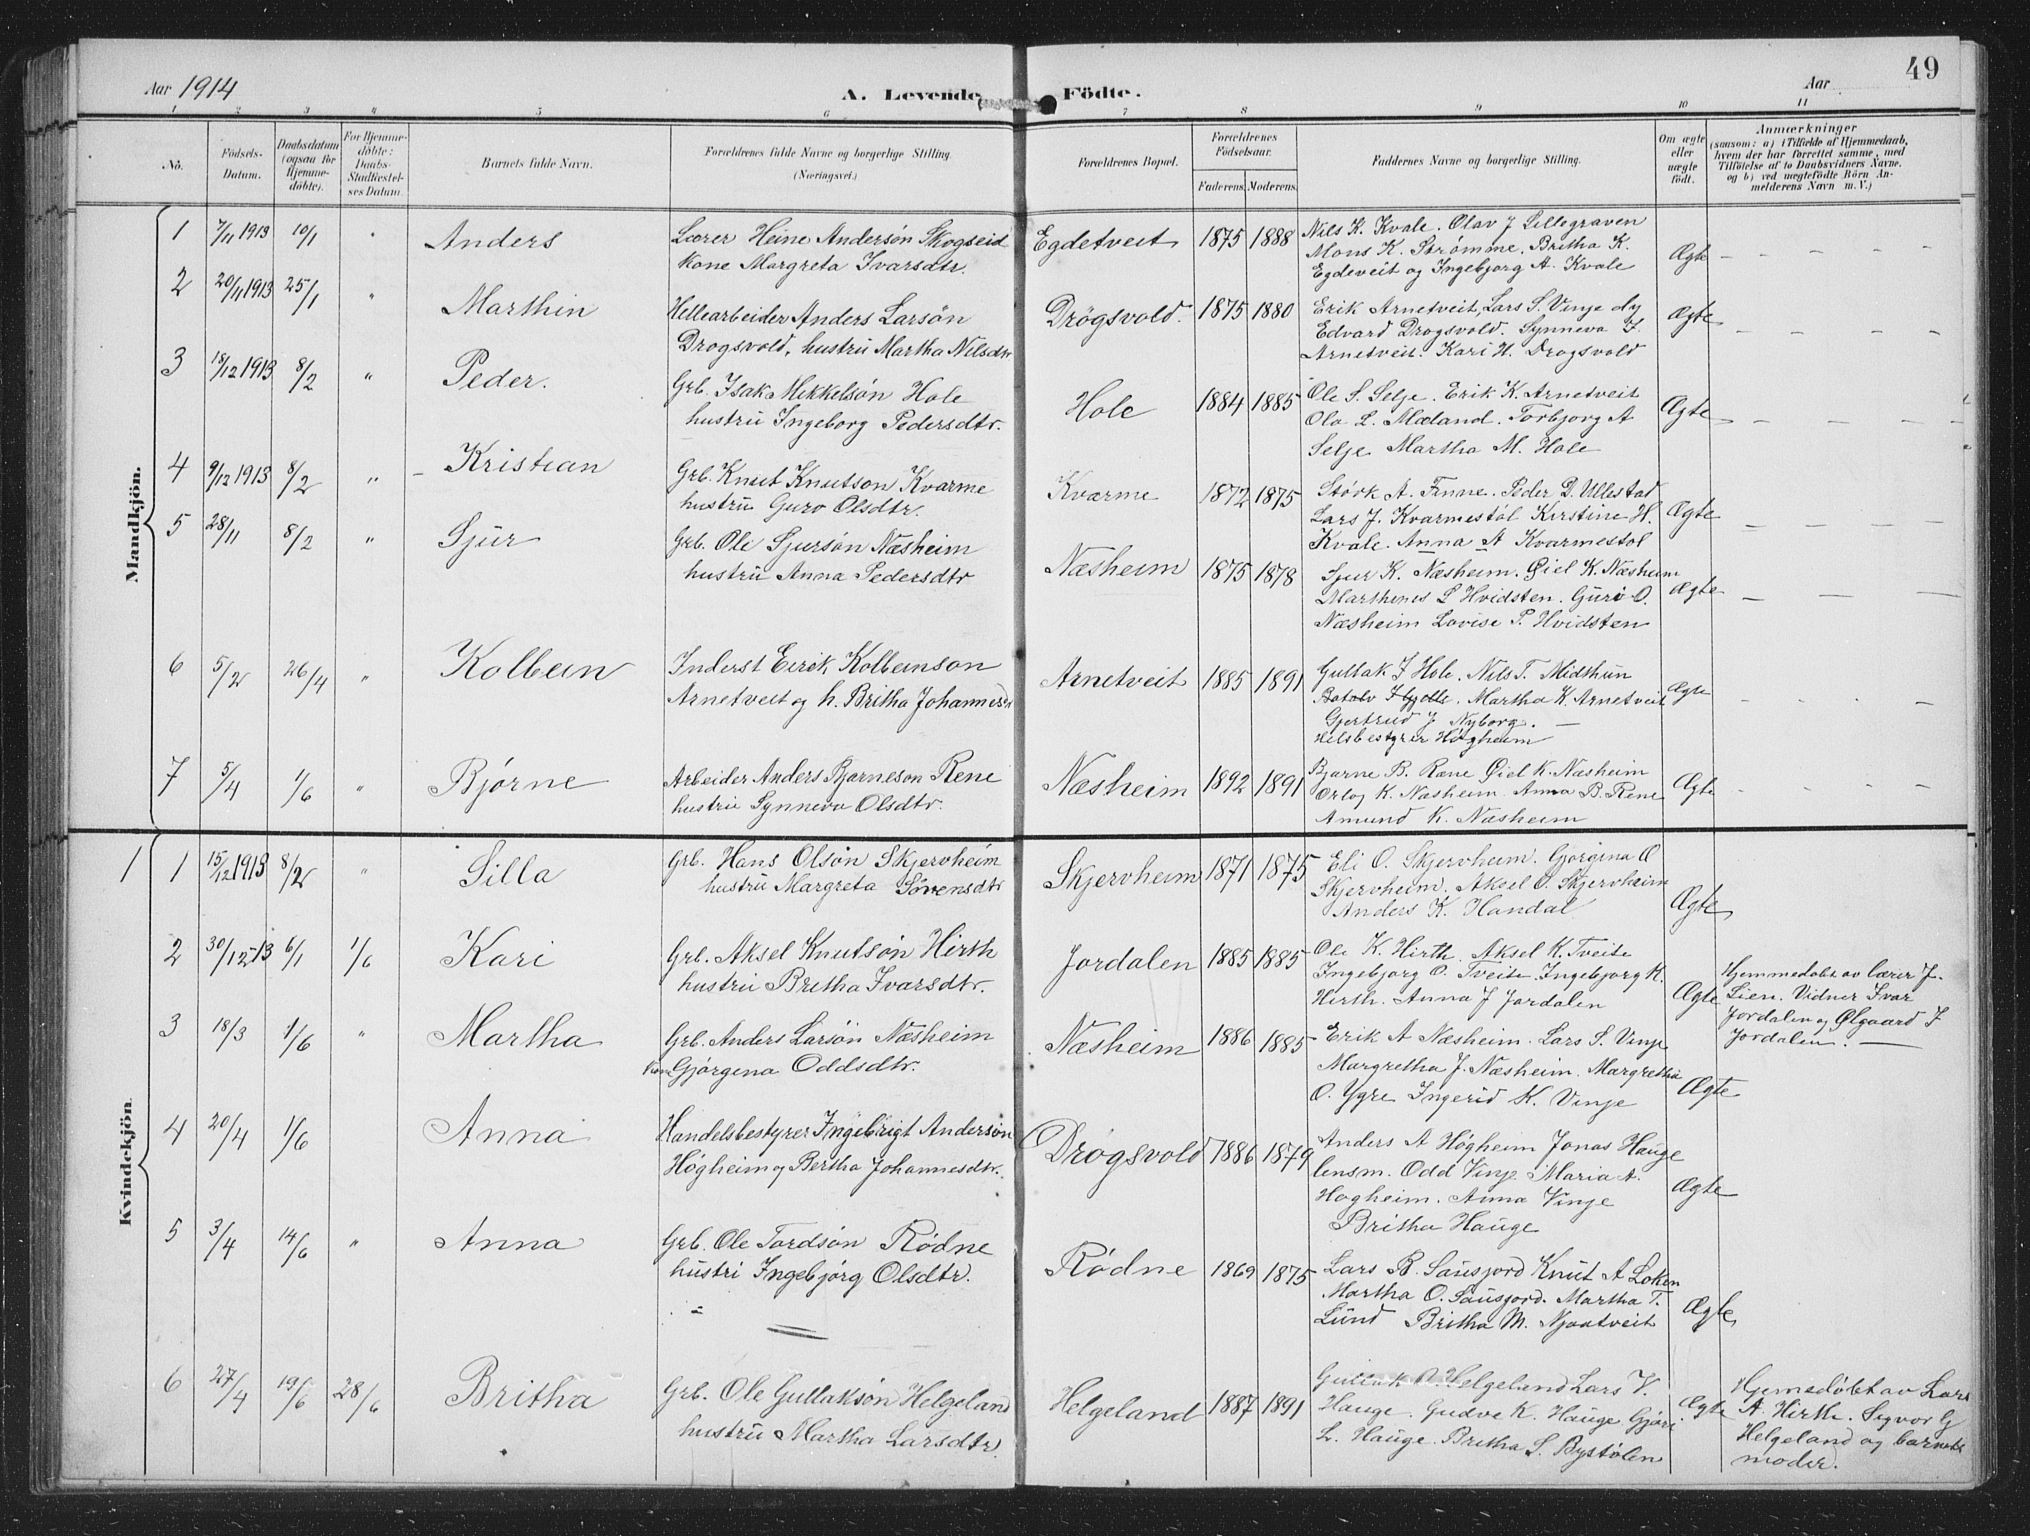 Aar 1914
A. Levende Födte.
Aar
49
1 2 3 4 5 6 7 8 9 10 11
No.
Födsels-Datum.
Daabsdatum (ogsaa för Hjemmedöbte).
For Hjemmedöbte: Daabs-Stadfæstelses Datum.
Barnets fulde Navn.
Forældrenes fulde Navne og borgerlige Stilling. (Næringsvei.)
Forældrenes Bopæl.
Forældrenes Födselsaar.
Faderens. Moderens.
Faddernes Navne og borgerlige Stilling.
Om ægte eller uægte födt.
Anmærkninger
(saasom: a) i Tilfælde af Hjemmedaab, hvem der har forrettet samme, med Tilföielse af to Daabsvidners Navne, og b) ved uægtefödte Börn Anmelderens Navn m. V.)
Mandkjön.
1 7/11 1913 10/1 " Anders
Lærer Heine Andersön Skogseid
kone Margreta Ivarsdtr.
Egdetveit 1875 1888
Nils K. Kvale. Olav J Lillegraven
Mons K. Strømme. Britha K.
Egdeveit og Ingebjorg A. Kvale
Ægte
2 20/11 1913 25/1 " Marthin
Hellearbeider Anders Larsön
Drogsvold, hustru Martha Nilsdtr
Drögsvold. 1875 1880
Erik Arnetveit, Lars S. Vinje
Edvard Drogsvold. Synneva I.
Arnetveit. Kari H. Drogsvold
Ægte
3 18/12 1913 8/2 " Peder.
Grb. Isak Mikkelsön Hole
hustru Ingeborg Pedersdtr.
Hole 1884 1885
Ole S. Selje. Erik K. Arnetveit
Ola L. Mæland. Torbjorg A
Selje Martha M. Hole
Ægte
4 9/12 1913 8/2 " Kristian
Grb. Knut Knutson Kvarme
hustru Guro Olsdtr.
Kvarme 1872 1875
Størk A. Finne. Peder D. Ullestad
Lars J. Kvarmestöl Kirstine H.
Kvale. Anna A Kvarmestol
Ægte
5 28/11 8/2 " Sjur
Grb. Ole Sjursön Næsheim
hustru Anna Pedersdtr
Næsheim 1875 1878
Sjur K. Næsheim. Øiel K. Næsheim
Marthenes L Hvidsten. Guri O.
Næsheim Lovise P. Hvidsten
Ægte
6 5/2 26/4 " Kolbein
Inderst Eirik Kolbeinson
Arnetveit og h. Britha Johannesd
Arnetveit 1885 1891
Gullak I Hole. Nils T. Midthun
Martha K Arnetveit
Gjertrud J Nyborg.
Helsbestyrer Høgheim
Ægte
7 5/4 1/6 " Bjørne
Arbeider Anders Bjarneson Rene
hustru Synneva Olsdtr.
Næsheim 1892 1891
Bjarne B. Ræne Øiel K. Næsheim
K. Næsheim. Anna B. Rene
Amund K. Næsheim
Ægte
Kvindekjön
1 1 15/12 1913 8/2 " Silla
Grb. Hans Olsön Skjervheim
hustru Margreta Sövensdtr
Skjervheim 1871 1875
Eli O. Skjervheim. Gjorgina O
Skjervheim. Aksel O. Skjervheim
Anders K. Handal
Ægte
2 30/12-13 6/1 1/6 Kari
Grb. Aksel Knutsön Hirth
hustru Britha Ivarsdtr.
Jordalen 1885 1885
Ole K. Hirth. Aksel K. Tveite
Ingebjorg O. Tveite. Ingebjorg K.
Hirth. Anna J Jordalen
Ægte
Hjemmedobt av lærer J.
Lien. Vidner Ivar
Jordalen og Ølgaard I
Jordalen.
3 18/3 1/6 " Martha
Grb. Anders Larsön Næsheim
kone Gjörgena Oddsdtr.
Næsheim 1886 1885
Erik A Næsheim. Lars S. Vinje
Margretha J. Næsheim. Margretha
O. Ygre Ingerid K. Vinje
Ægte
4 20/4 1/6 Anna
Handelsbestyrer Ingebrigt Andersön
Högheim og Bertha Johannesdtr.
Drögsvold 1886 1879
Anders A Högheim Jonas Hauge
lensm. Odd Vinje Maria A.
Hogheim. Anna Vinje
Britha Hauge
Ægte
5 3/4 14/6 " Anna
Grb. Ole Tordsön Rödne
hustri Ingebjörg Olsdtr.
Rödne 1869 1875
Lars B. Sausjord Knut A Loken
Martha O. Sausjord. Martha T.
Lund Britha M. Njaatveit
Ægte
6 27/4 19/6 28/6 Britha
Grb. Ole Gullaksön Helgeland
hustru Martha Larsdtr.
Helgeland 1887 1891
Gullak O. Helgeland Lars V.
Hauge. Gudve K. Hauge. Gjöri
L. Hauge. Britha S. Bystölen
Ægte
Hjemedöbt av Lars
A. Hirth. Sigvor G
Helgeland og barnets
moder.